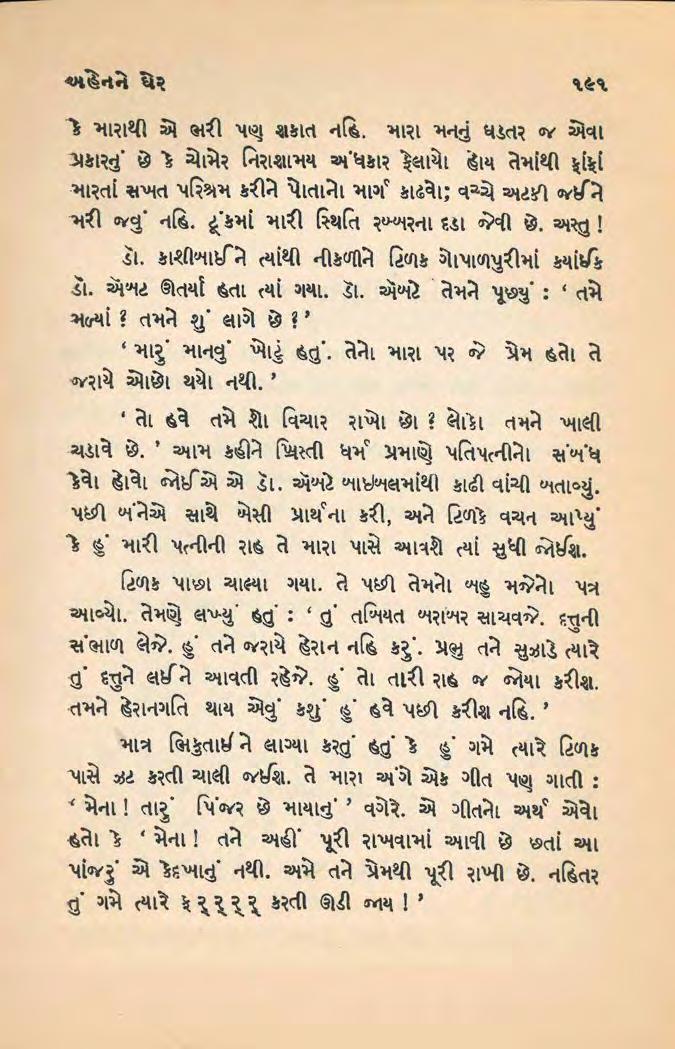 બહેનને ઘેર ૧૯૧
કે મારાથી એ ભરી પણ શકાત નહિ. મારા મનનું ઘડતર જ એવા
પ્રકારનું છે કે ચોમેર નિરાશામય અંધકાર ફેલાયો હોય તેમાંથી ફાંફાં
મારતાં સખત પરિશ્રમ કરીને પોતાનો માર્ગ કાઢવો; વચ્ચે અટકી જઈને
મરી જવું નહિ. ટૂંકમાં મારી સ્થિતિ રબ્બરના દડા જેવી છે. અસ્તુ !
ડૉ. કાશીબાઈને ત્યાંથી નીકળીને ટિળક ગોપાળપુરીમાં ક્યાંઈક
ડૉ. ઍબટ ઊતર્યા હતા ત્યાં ગયા. ડૉ. ઍબટે તેમને પૂછ્યું : ‘ તમે
મળ્યાં ? તમને શું લાગે છે ?’
‘ મારું માનવું ખોટું હતું. તેનો મારા પર જે પ્રેમ હતો તે
જરાયે ઓછો થયો નથી. ’
‘ તો હવે તમે શો વિચાર રાખો છો ? લોકો તમને ખાલી
ચડાવે છે. ’ આમ કહીને ખ્રિસ્તી ધર્મ પ્રમાણે પતિપત્નીનો સંબંધ
કેવો હોવો જોઈએ એ ડૉ. ઍબટે બાઇબલમાંથી કાઢી વાંચી બતાવ્યું.
પછી બંનેએ સાથે બેસી પ્રાર્થના કરી, અને ટિળકે વચન આપ્યું
કે હું મારી પત્નીની રાહ તે મારા પાસે આવશે ત્યાં સુધી જોઈશ.
ટિળક પાછા ચાલ્યા ગયા. તે પછી તેમનો બહુ મજેનો પત્ર
આવ્યો. તેમણે લખ્યું હતું : ‘ તું તબિયત બરાબર સાચવજે. દત્તુની
સંભાળ લેજે. હું તને જરાયે હેરાન નહિ કરું. પ્રભુ તને સુઝાડે ત્યારે
તું દત્તુને લઈને આવતી રહેજે. હું તો તારી રાહ જ જોયા કરીશ.
તમને હેરાનગતિ થાય એવું કશું હું હવે પછી કરીશ નહિ. ’
માત્ર ભિકુતાઈને લાગ્યા કરતું હતું કે હું ગમે ત્યારે ટિળક
પાસે ઝટ કરતી ચાલી જઈશ. તે મારા અંગે એક ગીત પણ ગાતી :
‘ મેના ! તારું પિંજર છે માયાનું ’ વગેરે. એ ગીતનો અર્થ એવો
હતો કે ‘ મેના ! તને અહીં પૂરી રાખવામાં આવી છે છતાં આ
પાંજરું એ કેદખાનું નથી. અમે તને પ્રેમથી પૂરી રાખી છે. નહિતર
તું ગમે ત્યારે ફર્‌ર્‌ર્‌ર્ કરતી ઊડી જાય ! ’